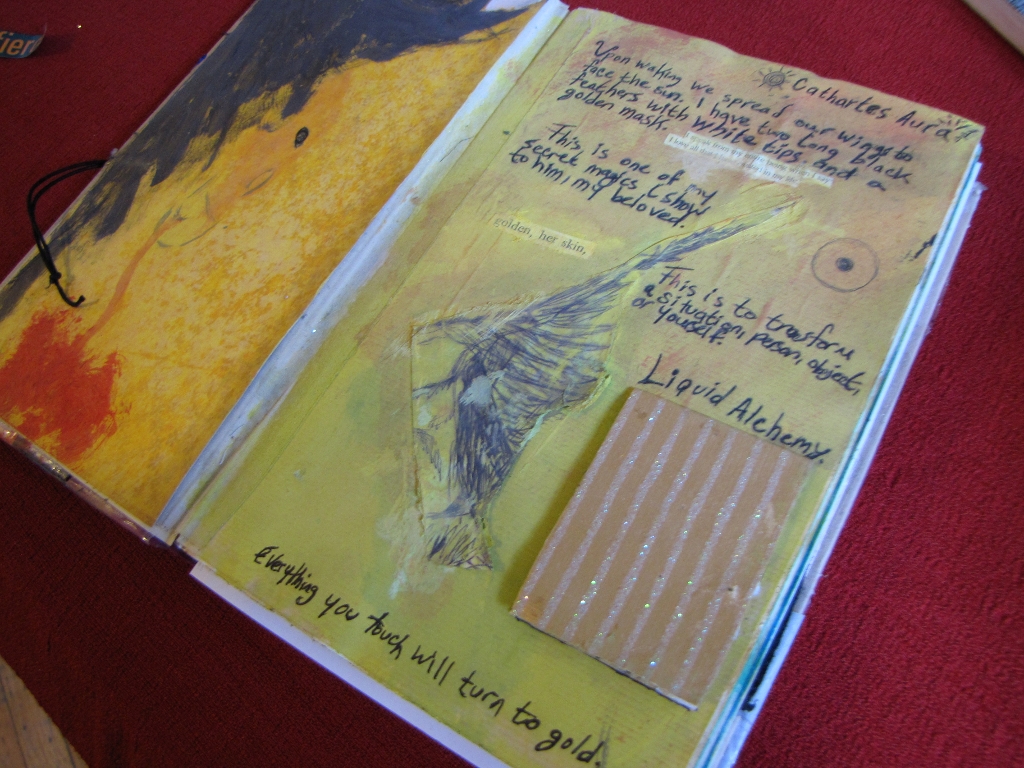 fier
Cathartes Aura
Upon waking we spread our wings to
face the sun. I have two long black
feathers with white tips and a
golden mask.
This is one of my
secret magics I show
to him, my beloved.
golden, her skin,
This is to transform
a situation, person, object,
or yourself.
Liquid Alchemy.
Everything you touch will turn to gold.